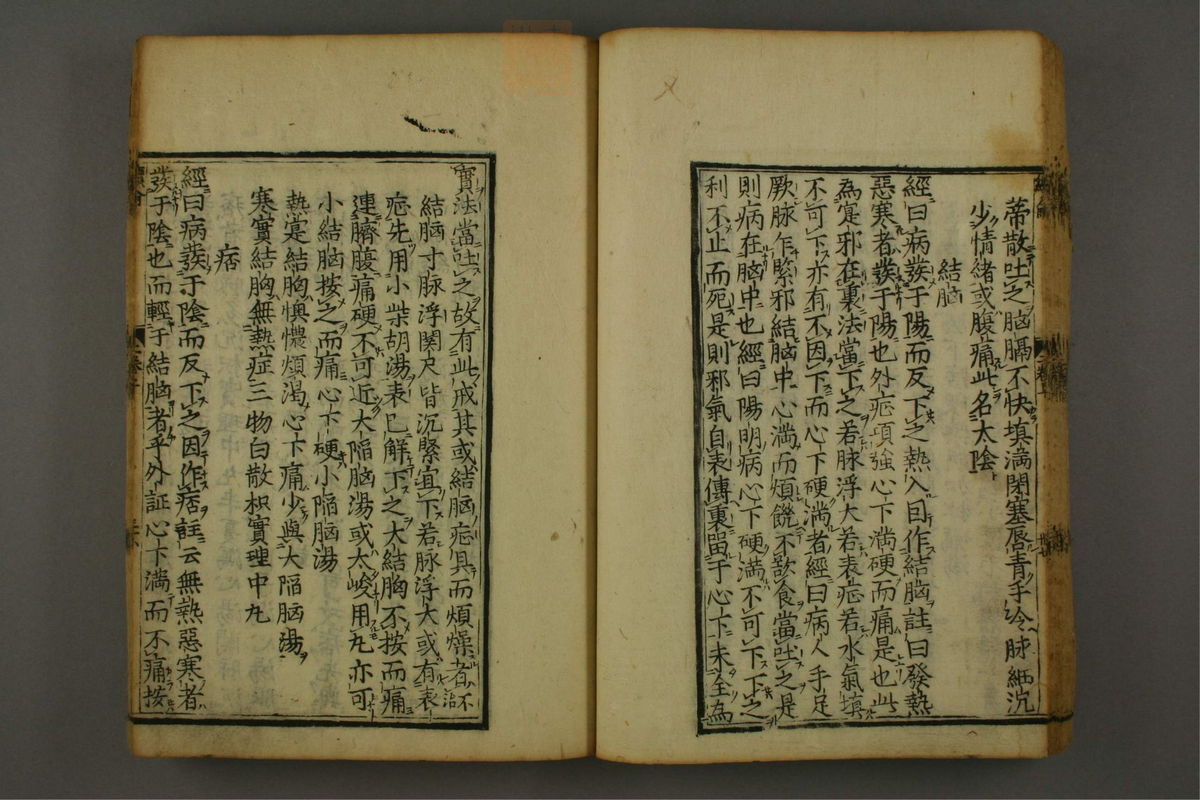 蒂散吐之脑膈不快填満閉塞唇青手冷脉細沉
少情緒或腹痛此名太陰
結脑
經曰病發于陽而反下之熱入因作結脑註曰發熱
惡寒者發于陽也外症項強心下満硬而痛是也此
為寔邪在裏法當下之若脉浮大若表症若水氣填
不可下亦有不因下而心下硬満者經曰病人手足
厥脉乍緊邪結脑中心満而煩饑不飲食當吐之是
則病在脑中也經曰陽明病心下硬満不可下下之
利不止而死是則邪氣自表傳裏留于心下未全為
實法當吐之故有此戒其或結脑症具而煩燥者不治
結脑寸脉浮関尺皆沉緊宜下若脉浮大或有表
症先用小柴胡湯表已解下之大結胸不按而痛
連臍腹痛硬不可近大陥脑湯或太峻用丸亦可
小結脑按之而痛心下硬小陥脑湯
熱寔結胸懊憹煩渇心下痛少與大陥脑湯
寒實結胸無熱症三物白散枳實理中丸
痞
經曰病發于陰而反下之因作痞註云無熱惡寒者
發于陰也而輕于結脑者乎外証心下満而不痛按